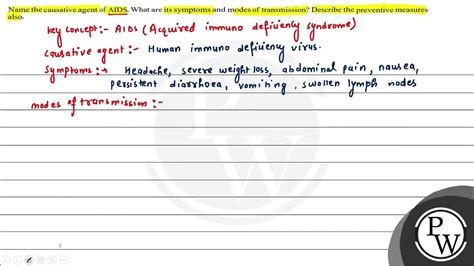 Name the causative agent of AIDS. What are its symptoms and modes of transmission? Describe the preventive measures
also.
Key concept:- AIDS (Acquired immuno defiuiency syndrome)
Causative agent:- Human immuno defiuiency virus.
Symptoms:→ Headache, severe weight loss, abdominal pain, nausea,
persistent diarrhoea, vomiting, swollen lymph nodes
modes of transmission:-
PW
PW